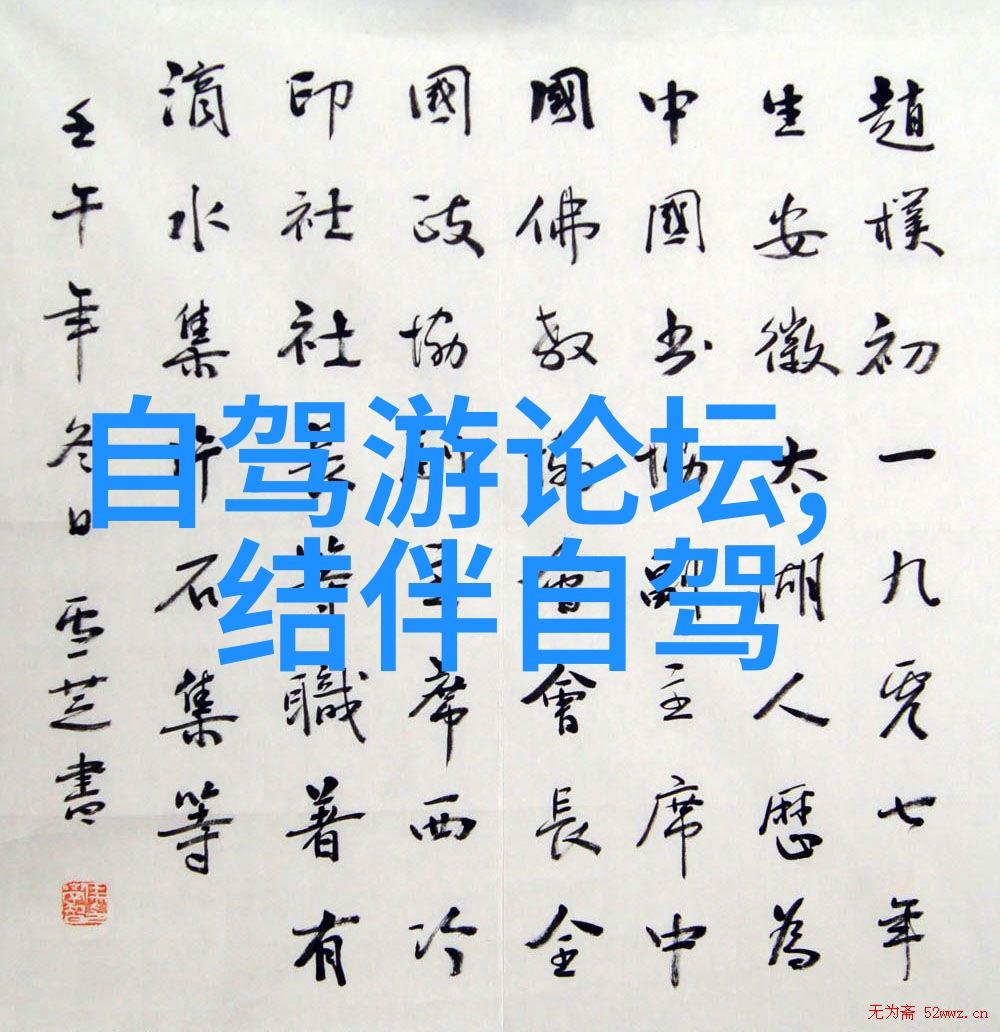 趙樸初一九零七年
生安徽太湖人歷為
中國书協副主席中
國佛教協會會長全
國政協副主席西泠
印社社長等職著有
滴水集石集等
壬午年冬日雪芝書
自驾游论坛,
结伴自驾
无为斋 52wwz.cn